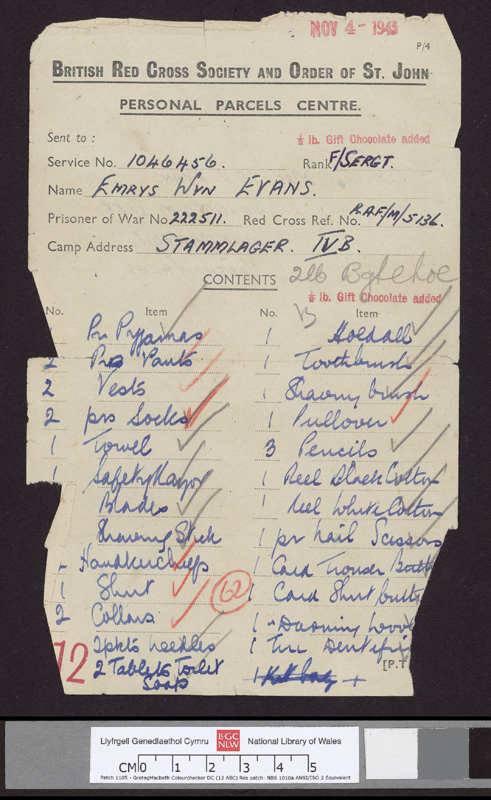 NOV 4 - 1943
P/4
BRITISH RED CROSS SOCIETY AND ORDER OF ST. JOHN
PERSONAL PARCELS CENTRE.
Sent to :
½ lb. Gift Chocolate added
Service No. 1046456. Rank F/SERGT.
Name EMRYS WYN EVANS.
Prisoner of War No 222511. Red Cross Ref. No. R.A.F/M/5136.
Camp Address STAMMLAGER. IVB.
CONTENTS 2lb
½ lb. Gift Chocolate added
No. Item
1 Pr Pyjamas
2 Prs Pants
2 Vests
2 prs Socks
1 Towel
1 Safety Razor
Blades
Shaving Stick
- Handkerchiefs
1 Shirt
2 Collars
2pkts needles
2 Tablets Toilet
Soap
72
62
No. Item
1 Holdall
1 Toothbrush
1 Shaving brush
1 Pullover
3 Pencils
1 Reel Black Cotton
1 Reel White Cotton
1 pr Nail Scissors
1 Card Trouser Butt
1 Card Shirt butt
1 " Darning Wool
1 Tin Dentifri
1 Kit bag 1
[P.T
Llyfrgell Genedlaethol Cymru LLGC NLW National Library of Wales
CM 0 1 2 3 4 5
Patch 1105 - GretagMacbeth Colourchecker DC (12 ABC) Res patch: NBS 1010a ANSI/ISO 2 Equivalent